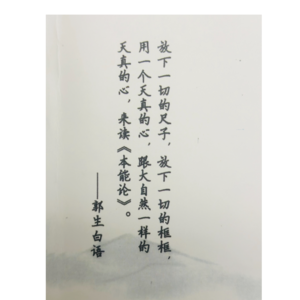 放下一切的尺子，放下一切的框框，
用一个天真的心，跟大自然一样的
天真的心，来读《本能论》。
——郭生白语